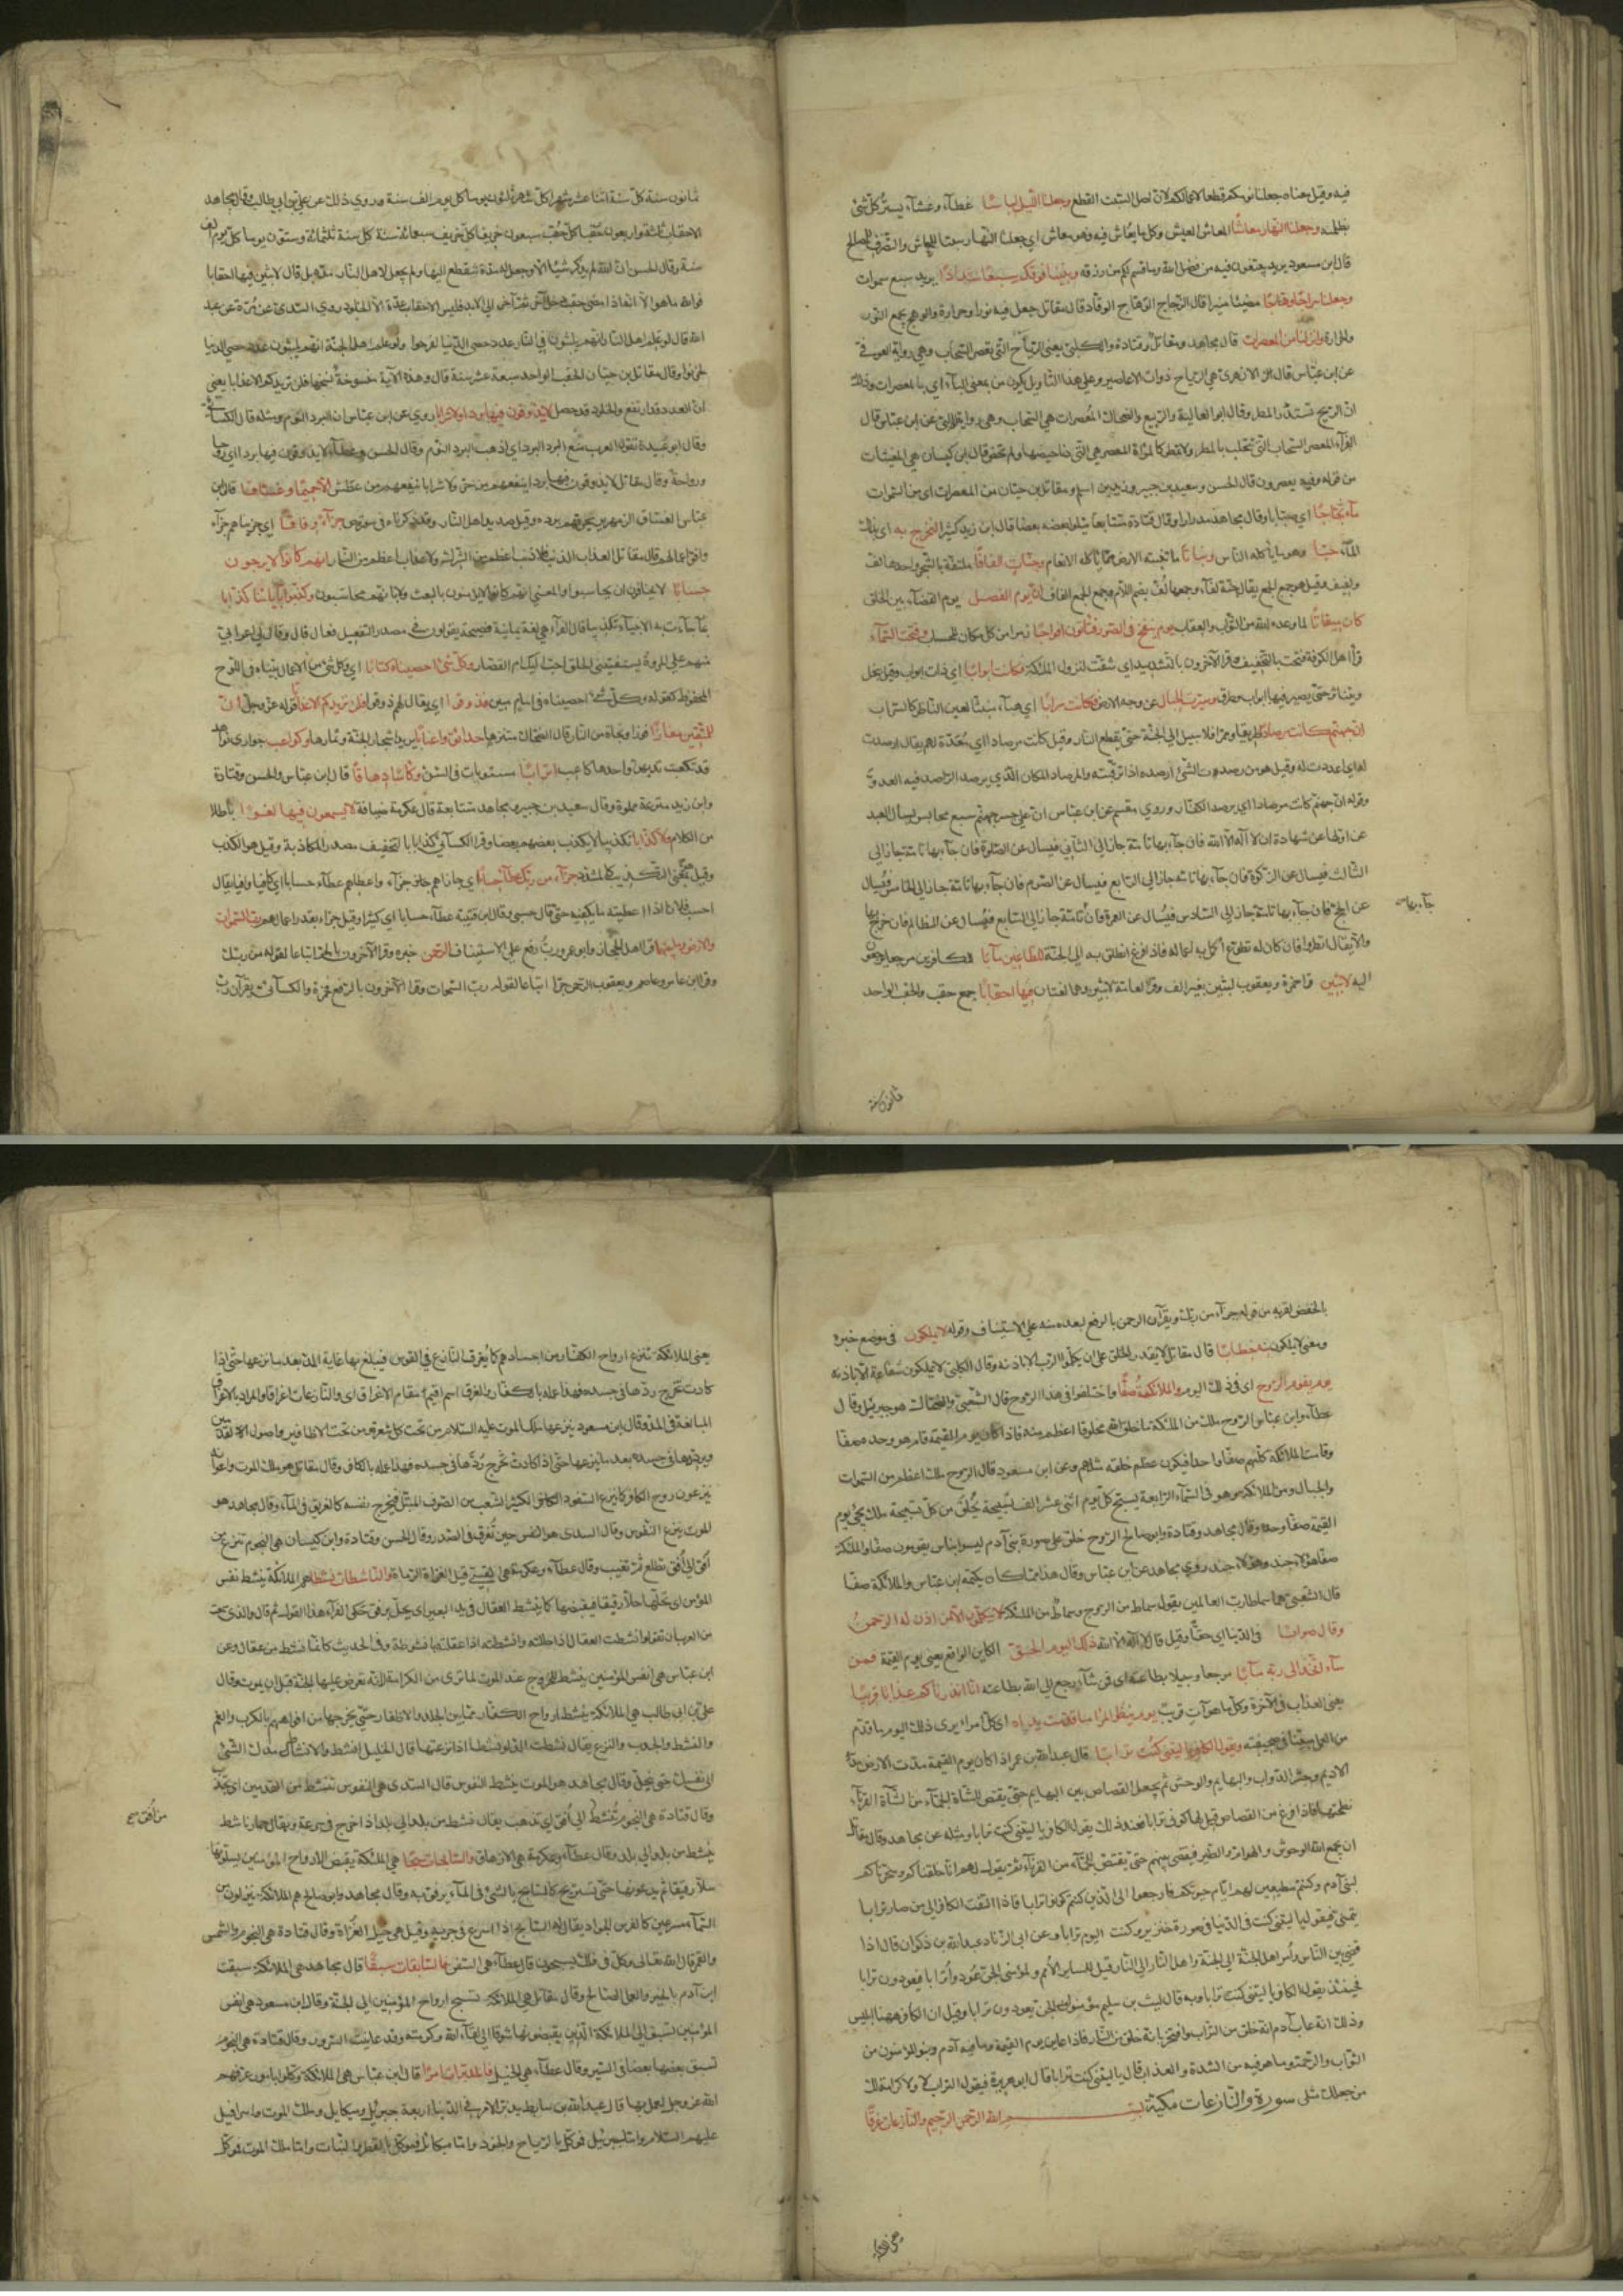 فيه وقيل معناه جعلنا نومكم قطعا لاعمالكم لان اصل السبت القطع وجعلنا الليل لباسا غطاء وغشاء يستر كل شئ
بظلمته وجعلنا النهار معاشا المعاش العيش وكل ما يعاش فيه فهو معاش اي جعلنا النهار سببا للمعاش والتصرف في المصالح
قال ابن عباس يريد تبتغون فيه من فضل الله وما قسم لكم من رزقه وبنينا فوقكم سبعا شدادا يريد سبع سموات
وجعلنا سراجا وهاجا مضيئا منيرا قال الزجاج الوهاج الوقاد قال مقاتل جعل فيه نورا وحرارة والوهج يجمع النور
والحرارة وانزلنا من المعصرات قال مجاهد ومقاتل وقتادة والكلبي يعني الرياح التي تعصر السحاب وهي رواية العوفي
عن ابن عباس قال الازهري هي الرياح ذوات الاعاصير وعلى هذا التأويل يكون من بمعنى الباء اي بالمعصرات وذلك
ان الريح تستدر المطر وقال ابو العالية والربيع والضحاك المعصرات هي السحاب وهي رواية الوالبي عن ابن عباس قال
الفراء المعصر السحاب التي تتحلب بالمطر ولا تمطر كالمرأة المعصر هي التي دنا حيضها ولم تحض وقال ابن كيسان هي المغيثات
من قوله وفيه يعصرون قال الحسن وسعيد بن جبير وزيد بن اسلم ومقاتل بن حيان من المعصرات اي من السموات
ماء ثجاجا اي صبابا وقال مجاهد مدرارا وقال قتادة متتابعا يتلو بعضه بعضا قال ابن زيد كثيرا لنخرج به اي بذلك
الماء حبا وهو ما يأكله الناس ونباتا ما تنبته الارض مما يأكله الانعام وجنات الفافا ملتفة بالشجر واحدها لف
ولفيف وقيل هو جمع الجمع يقال جنة لفاء وجمعها لف بضم اللام وجمع الجمع الفاف ان يوم الفصل يوم القضاء بين الخلق
كان ميقاتا لما وعد الله من الثواب والعقاب يوم ينفخ في الصور فتأتون افواجا زمرا من كل مكان للحساب وفتحت السماء
قرأ اهل الكوفة فتحت بالتخفيف وقرأ الاخرون بالتشديد اي شقت لنزول الملئكة فكانت ابوابا اي ذات ابواب وقيل تنحل
وتتناثر حتى يصير فيها ابواب وطرق وسيرت الجبال عن وجه الارض فكانت سرابا اي هباء منبثا لعين الناظر كالسراب
ان جهنم كانت مرصادا طريقا وممرا فلا سبيل الى الجنة حتى يقطع النار وقيل كانت مرصادا اي معدة لهم يقال ارصدت
له اي اعددت له وقيل هو من رصدت الشئ ارصده اذا ترقبته والمرصاد المكان الذي يرصد الراصد فيه العدو
وقوله ان جهنم كانت مرصادا اي يرصد الكفار وروي مقسم عن ابن عباس ان على جسر جهنم سبع محابس يسأل العبد
عن اولها عن شهادة ان لا اله الا الله فان جاء بها تامة جاز الى الثاني فيسأل عن الصلوة فان جاء بها تامة جاز الى
الثالث فيسأل عن الزكوة فان جاء بها تامة جاز الى الرابع فيسأل عن الصوم فان جاء بها تامة جاز الى الخامس فيسأل
عن الحج فان جاء بها تامة جاز الى السادس فيسأل عن العمرة فان تامة جاز الى السابع فيسأل عن المظالم فان خرج منها
جاء بها صح
والا يقال انظروا فان كان له تطوع اكمل به اعماله فاذا فرغ انطلق به الى الجنة للطاغين مآبا للكافرين مرجعا يرجعون
اليه لابثين قرأ حمزة ويعقوب لبثين بغير الف وقرأ العامة لابثين وهما لغتان فيها احقابا جمع حقب والحقب الواحد
ثمانون سنة
ثمانون سنة كل سنة اثنا عشر شهرا كل شهر ثلثون يوما كل يوم الف سنة وروي ذلك عن علي بن ابي طالب وقال مجاهد
الاحقاب ثلثة واربعون حقبا كل حقب سبعون خريفا كل خريف سبعمائة سنة كل سنة ثلثمائة وستون يوما كل يوم الف
سنة وقال الحسن ان الله لم يذكر شيئا الا وجعل له مدة ينقطع اليها ولم يجعل لاهل النار مدة بل قال لابثين فيها احقابا
فوالله ما هو الا انه اذا مضى حقب دخل آخر ثم آخر الى الابد فليس للاحقاب عدة الا الخلود وروي السدي عن مرة عن عبد
الله قال لو علم اهل النار انهم يلبثون في النار عدد حصى الدنيا لفرحوا ولو علم اهل الجنة انهم يلبثون عدد حصى الدنيا
لحزنوا وقال مقاتل بن حيان الحقب الواحد سبعة عشر سنة قال وهذه الآية منسوخة نسختها فلن نزيدكم الا عذابا يعني
ان العدد قد ارتفع والخلود قد حصل لا يذوقون فيها بردا ولا شرابا روي عن ابن عباس ان البرد النوم ومثله قال الكسائي
وقال ابو عبيدة تقول العرب منع البرد البرد اي اذهب البرد النوم وقال الحسن وعطاء لا يذوقون فيها بردا اي روحا
وراحة وقال مقاتل لا يذوقون فيها بردا ينفعهم من حر ولا شرابا ينفعهم من عطش الا حميما وغساقا قال ابن
عباس الغساق الزمهرير يحرقهم ببرده وقيل صديد اهل النار وقد ذكرناه في سورة ص جزاء وفاقا اي جزيناهم جزاء
وافق اعمالهم قال مقاتل وافق العذاب الذنب فلا ذنب اعظم من الشرك ولا عذاب اعظم من النار انهم كانوا لا يرجون
حسابا لا يخافون ان يحاسبوا والمعنى انهم كانوا لا يؤمنون بالبعث ولا بانهم محاسبون وكذبوا بآياتنا كذابا
بما جاءت به الانبياء تكذيبا قال الفراء هي لغة يمانية فصيحة يقولون في مصدر التفعيل فعال قال وقال لي اعرابي
منهم على المروة يستفتيني الحلق احب اليك ام القصار وكل شئ احصيناه كتابا اي وكل شئ من الاعمال بيناه في اللوح
المحفوظ كقوله وكل شئ احصيناه في امام مبين فذوقوا اي يقال لهم ذوقوا فلن نزيدكم الا عذابا قوله عز وجل ان
للمتقين مفازا فوزا ونجاة من النار قال الضحاك متنزها حدائق واعنابا يريد اشجار الجنة وثمارها وكواعب جواري نواهد
قد تكعبت ثديهن واحدها كاعب اترابا مستويات في السن وكأسا دهاقا قال ابن عباس والحسن وقتادة
وابن زيد مترعة مملوة وقال سعيد بن جبير ومجاهد متتابعة قال عكرمة صافية لا يسمعون فيها لغوا باطلا
من الكلام ولا كذابا تكذيبا لا يكذب بعضهم بعضا وقرأ الكسائي كذابا بالتخفيف مصدر المكاذبة وقيل هو الكذب
وقيل هو بمعنى التكذيب كالمشدد جزاء من ربك عطاء حسابا اي جازاهم جزاء واعطاهم عطاء حسابا اي كافيا وافيا يقال
احسبت فلانا اذا اعطيته ما يكفيه حتى قال حسبي وقال ابن قتيبة عطاء حسابا اي كثيرا وقيل جزاء بقدر اعمالهم رب السموات
والارض وما بينهما قرأ اهل الحجاز وابو عمرو رب رفع على الاستيناف والرحمن خبره وقرأ الآخرون بالجر اتباعا لقوله من ربك
وقرأ ابن عامر وعاصم ويعقوب الرحمن جرا اتباعا لقوله رب السموات وقرأ الآخرون بالرفع فحمزة والكسائي يقرآن رب
بالخفض لقربه من قوله جزاء من ربك ويقرآن الرحمن بالرفع لبعده منه على الاستيناف وقوله لا يملكون في موضع خبره
ومعنى لا يملكون منه خطابا قال مقاتل لا يقدر الخلق على ان يكلموا الرب الا باذنه وقال الكلبي لا يملكون شفاعة الا باذنه
يوم يقوم الروح اي في ذلك اليوم والملائكة صفا واختلفوا في هذا الروح قال الشعبي والضحاك هو جبريل وقال
عطاء وابن عباس الروح ملك من الملئكة ما خلق الله مخلوقا اعظم منه فاذا كان يوم القيمة قام هو وحده صفا
وقامت الملائكة كلهم صفا واحدا فيكون عظم خلقه مثلهم وعن ابن مسعود قال الروح ملك اعظم من السموات
والجبال ومن الملائكة وهو في السماء الرابعة يسبح كل يوم اثنى عشر الف تسبيحة يخلق من كل تسبيحة ملك يجئ يوم
القيمة صفا وحده وقال مجاهد وقتادة وابو صالح الروح خلق على صورة بني آدم ليسوا بناس يقومون صفا والملئكة
صفا هؤلاء جند وهؤلاء جند وروي مجاهد عن ابن عباس وقال هذا مما كان يكتمه ابن عباس والملائكة صفا
قال الشعبي هما سماطا رب العالمين يقوم سماط من الروح وسماط من الملئكة لا يتكلمون الا من اذن له الرحمن
وقال صوابا في الدنيا اي حقا وقيل قال لا اله الا الله ذلك اليوم الحق الكاين الواقع يعني يوم القيمة فمن
شاء اتخذ الى ربه مآبا مرجعا وسبيلا بطاعته اي فمن شاء رجع الى الله بطاعته انا انذرناكم عذابا قريبا
يعني العذاب في الآخرة وكل ما هو آت قريب يوم ينظر المرء ما قدمت يداه اي كل امرء يرى ذلك اليوم ما قدم
من العمل مثبتا في صحيفته ويقول الكافر يا ليتني كنت ترابا قال عبد الله بن عمر اذا كان يوم القيمة مدت الارض مد
الاديم وحشر الدواب والبهايم والوحش ثم يجعل القصاص بين البهايم حتى يقتص للشاة الجماء من الشاة القرناء
نطحتها فاذا فرغ من القصاص قيل لها كوني ترابا فعند ذلك يقول الكافر يا ليتني كنت ترابا ومثله عن مجاهد وقال مقاتل
ان يجمع الله الوحوش والهوام والطير فيقضي بينهم حتى يقتص للجماء من القرناء ثم يقول لهم انا خلقناكم وسخرناكم
لبني آدم وكنتم مطيعين لهم ايام حيوتكم فارجعوا الى الذي كنتم كونوا ترابا فاذا التفت الكافر الى من صار ترابا
يتمنى فيقول يا ليتني كنت في الدنيا في صورة خنزير وكنت اليوم ترابا وعن ابي الزناد عبد الله بن ذكوان قال اذا
قضي بين الناس وامر اهل الجنة الى الجنة واهل النار الى النار قيل لساير الامم ولمؤمني الجن عودوا ترابا فيعودون ترابا
فحينئذ يقول الكافر يا ليتني كنت ترابا وبه قال ليث بن سليم مؤمنوا الجن يعودون ترابا وقيل ان الكافر ههنا ابليس
وذلك انه عاب آدم انه خلق من التراب وافتخر بانه خلق من النار فاذا عاين يوم القيمة وما فيه آدم وبنوه المؤمنون من
الثواب والرحمة وما هو فيه من الشدة والعذاب قال يا ليتني كنت ترابا قال ابو هريرة فيقول التراب لا ولا كرامة لك
من جعلك مثلي سورة والنازعات مكية بسم الله الرحمن الرحيم والنازعات غرقا
يعني الملائكة تنزع ارواح الكفار من اجسادهم كما يغرق النازع في القوس فيبلغ بها غاية المد بعد ما نزعها حتى اذا
كادت تخرج ردها في جسده فهذا عمله بالكفار والغرق اسم اقيم مقام الاغراق اي والنازعات اغراقا والمراد بالاغراق
المبالغة في المد وقال ابن مسعود ينزعها ملك الموت عليه السلام من تحت كل شعرة ومن تحت الاظافير واصول القدمين
ويردها في جسده بعد ما ينزعها حتى اذا كادت تخرج ردها في جسده فهذا عمله بالكافر وقال مقاتل هو ملك الموت واعوانه
ينزعون روح الكافر كما ينزع السفود الكثير الشعب من الصوف المبتل فيخرج نفسه كالغريق في الماء وقال مجاهد هو
الموت ينزع النفوس وقال السدي هو النفس حين تغرق في الصدر وقال الحسن وقتادة وابن كيسان هي النجوم تنزع من
افق الى افق تطلع ثم تغيب وقال عطاء وعكرمة هي القسي وقيل الغزاة الرماة والناشطات نشطا هم الملائكة ينشط نفس
المؤمن اي تحلها حلا رفيقا فيقبضها كما ينشط العقال من يد البعير اي يحل برفق حكى الفراء هذا القول ثم قال والذي سمعت
من العرب ان تقولوا انشطت العقال اذا حللته وانشطته اذا عقلته بانشوطة وفي الحديث كانما انشط من عقال وعن
ابن عباس هي انفس المؤمنين ينشط للخروج عند الموت لما ترى من الكرامة لانه تعرض عليها الجنة قبل ان يموت وقال
علي بن ابي طالب هي الملائكة ينشط ارواح الكفار مما بين الجلد والاظفار حتى يخرجها من افواههم بالكرب والغم
والنشط والجذب والنزع يقال نشطت الدلو نشطا اذا نزعتها قال الخليل النشط والانشاط مدك الشئ
الى نفسك حتى ينحل وقال مجاهد هو الموت ينشط النفوس قال السدي هي النفوس تنشط من القدمين اي تجذب
وقال قتادة هي النجوم تنشط الى افق اي تذهب يقال نشط من بلد الى بلد اذا خرج في سرعة ويقال حمار ناشط
من افق صح
ينشط من بلد الى بلد وقال عطاء وعكرمة هي الاوهاق والسابحات سبحا هي الملئكة يقبض الارواح المؤمنين يسلونها
سلا رفيقا ثم يدعونها حتى تستريح كالسابح بالشئ في الماء يرفق به وقال مجاهد وابو صالح هم الملائكة ينزلون من
السماء مسرعين كالفرس الجواد يقال له السابح اذا اسرع في جريه وقيل هي خيل الغزاة وقال قتادة هي النجوم والشمس
والقمر قال الله تعالى وكل في فلك يسبحون قال عطاء هي السفن فالسابقات سبقا قال مجاهد هي الملائكة سبقت
ابن آدم بالخير والعمل الصالح وقال مقاتل هي الملائكة تسبق ارواح المؤمنين الى الجنة وقال ابن مسعود هي انفس
المؤمنين تسبق الى الملائكة الذين يقبضونها شوقا الى لقاء الله وكرامته وقد عاينت السرور وقال قتادة هي النجوم
تسبق بعضها بعضا في السير وقال عطاء هي الخيل فالمدبرات امرا قال ابن عباس هي الملائكة وكلوا بامور عرفهم
الله عز وجل العمل بها قال عبد الرحمن بن سابط يدبر الامر في الدنيا اربعة جبريل وميكايل وملك الموت واسرافيل
عليهم السلام واما جبريل فموكل بالرياح والجنود واما ميكايل فموكل بالقطر والنبات واما ملك الموت فموكل